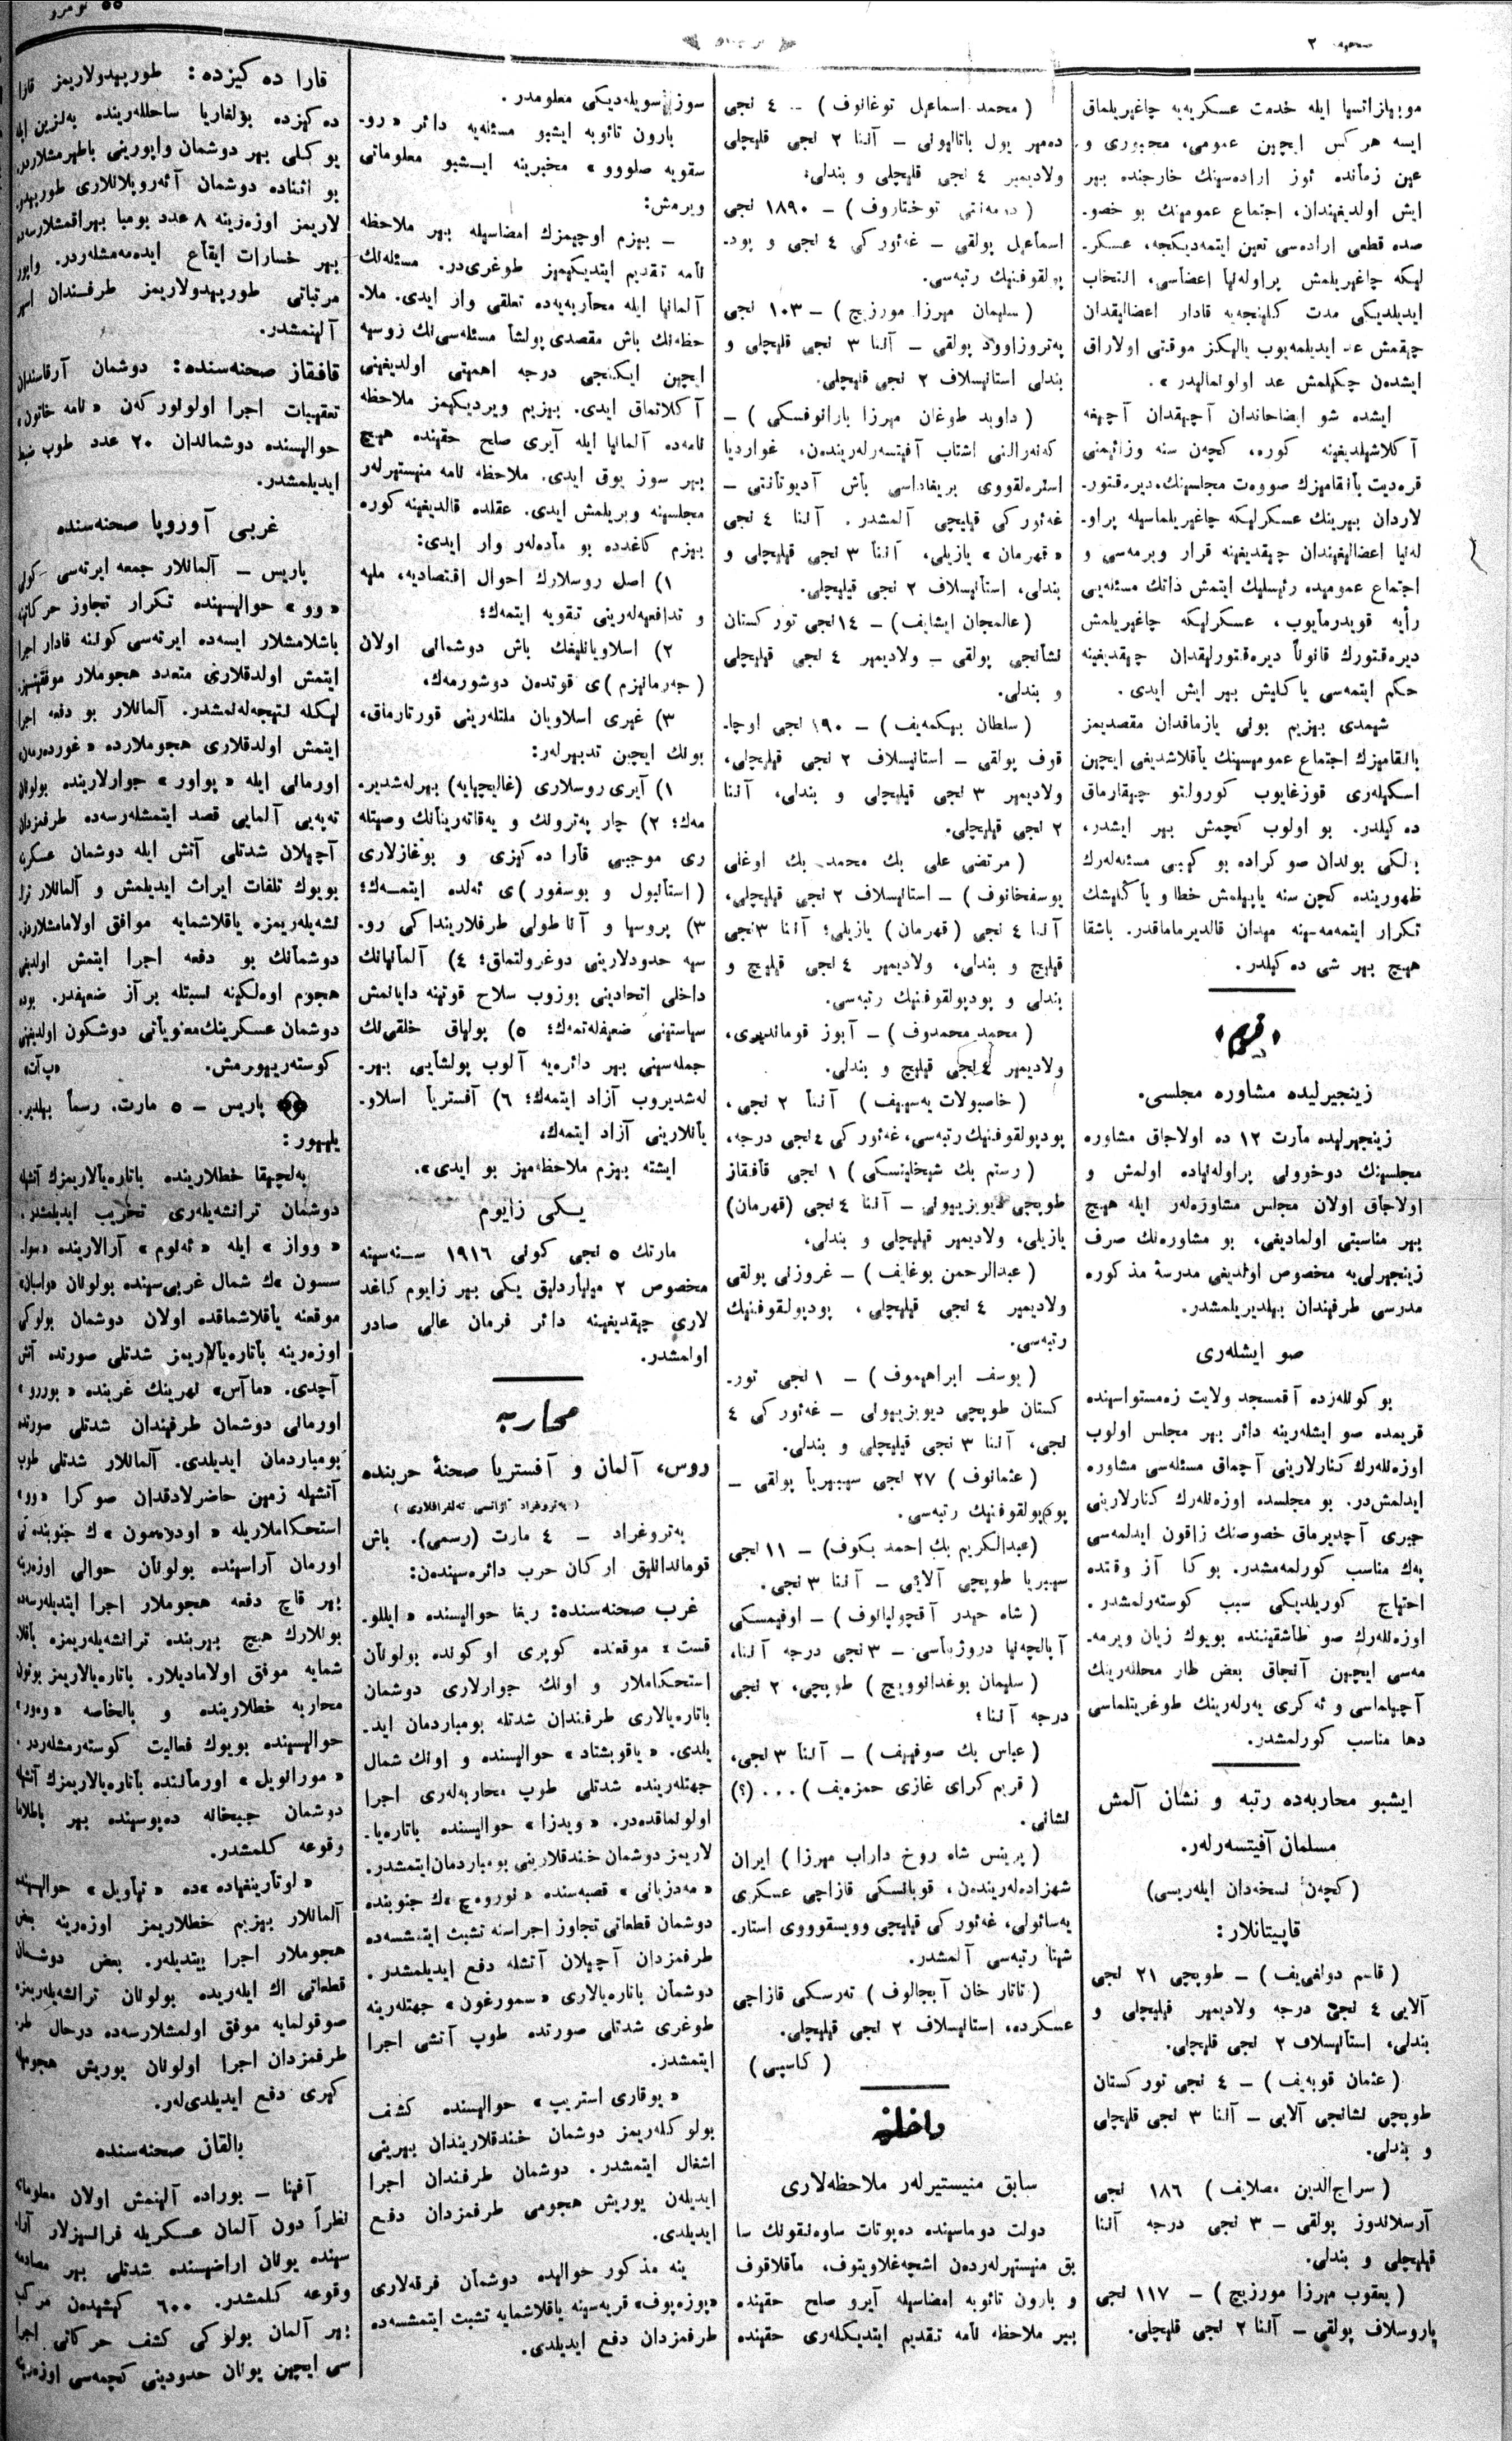 صحیفه ٢
ترجمان
نومرو ٥٥
موبیلیزاتسیا ایله خدمت عسکریه‌یه چاغیریلماق
ایسه هر کس ایچین عمومی، مجبوری و
عین زمانده ئوز اراده‌سینك خارجنده بیر
ایش اولدیغیندان، اجتماع عمومینك بو خصو-
صده قطعی اراده‌سی تعین ایتمه‌دیکجه، عسکر-
لیکه چاغیریلمش پراوله‌نیا اعضاسی، انتخاب
ایدیلدیکی مدت کلینجه‌یه قادار اعضالیقدان
چیقمش عد ایدیلمه‌یوب یالیکز موقتی اولاراق
ایشده‌ن چکیلمش عد اولونمالیدر».
ایشده شو ایضاحاندان آچیقدان آچیغه
آکلاشیلدیغینه کوره، کچه‌ن سنه وزائیمنی
قره‌دیت بانقامیزك صووه‌ت مجلسینك، دیره‌قتور-
لاردان بیرینك عسکرلیکه چاغیریلماسیله پراو-
له‌نیا اعضالیغیندان چیقدیغینه قرار ویرمه‌سی و
اجتماع عمومیده رئیسلیك ایتمش ذاتك مسئله‌یی
رأیه قویدرمایوب، عسکرلیکه چاغیریلمش
دیره‌قتورك قانوناً دیره‌قتورلیقدان چیقدیغینه
حکم ایتمه‌سی یاکلیش بیر ایش ایدی.
شیمدی بیزیم بونی یازماقدان مقصدیمز
بانقامیزك اجتماع عمومیسینك یاقلاشدیغی ایچین
اسکیله‌ری قوزغایوب کورولتو چیقارماق
ده‌کیلدر. بو اولوب کچمش بیر ایشدر،
بلکی بولدان صوکراده بو کیبی مسئله‌له‌رك
ظهورینده کچن سنه یاپیلمش خطا و یاکلیشك
تکرار ایتمه‌مه‌سینه میدان قالدیرماماقدر. باشقا
هیچ بیر شی ده‌کیلدر.
قریم
زینجیرلیده مشاوره مجلسی.
زینجیرلیده مارت ١٢ ده اولاجاق مشاوره
مجلسینك دوخوونی پراوله‌نیاده اولمش و
اولاجاق اولان مجلس مشاوره‌له‌ر ایله هیچ
بیر مناسبتی اولمادیغی، بو مشاوره‌نك صرف
زینجیرلی‌یه مخصوص اولدیغی مدرسۀ مذکوره
مدرسی طرفیندان بیلدیریلمشدر.
صو ایشله‌ری
بو کونله‌رده آقمسجد ولایت زه‌مستواسینده
قریمده صو ایشله‌رینه دائر بیر مجلس اولوب
اوزه‌نله‌رك کنارلارینی آچماق مسئله‌سی مشاوره
ایدلمش‌در. بو مجلسده اوزه‌نله‌رك کنارلارینی
جبری آچدیرماق خصوصنك زاقون ایدلمه‌سی
په‌ك مناسب کورلمه‌مشدر. بوکا آز وقتده
احتیاج کوریلدیکی سبب کوسته‌رلمشدر.
اوزه‌نله‌رك صو طاشقیننده بویوك زیان ویرمه-
مه‌سی ایچین آنجاق بعض طار محللەرینك
آچیلماسی و ئه‌کری یه‌رله‌رینك طوغریتلماسی
دها مناسب کورلمشدر.
ایشبو محاربه‌ده رتبه و نشان آلمش
مسلمان آفیتسه‌رله‌ر.
(کچه‌ن نسخه‌دان ایله‌ریسی)
قاپیتانلار:
(قاسم دولغی‌یف) – طوپچی ٢١ نجی
آلایی ٤ نجی درجه ولادیمیر قیلیچلی و
بندلی، استانیسلاف ٢ نجی قلیچلی.
(عثمان قوبه‌یف) – ٤ نجی تورکستان
طوپچی نشانجی آلایی – آننا ٣ نجی قلیچلی
و بندلی.
(سراج‌الدین مصلایف) ١٨٦ نجی
آرسلاندوز پولقی – ٣ نجی درجه آننا
قیلیچلی و بندلی.
(یعقوب میرزا مورزیچ) – ١١٧ نجی
یاروسلاف پولقی – آننا ٢ نجی قلیچلی.
(محمد اسماعیل توغانوف) – ٤ نجی
ده‌میر یول باتالیونی – آننا ٢ نجی قلیچلی
ولادیمیر ٤ نجی قلیچلی و بندلی؛
( توختاروف) – ١٨٩٠ نجی
اسماعیل پولقی – غه‌ئورکی ٤ نجی و پود-
پولقوفنیك رتبه‌سی.
(سلیمان میرزا مورزیچ) – ١٠٣ نجی
په‌تروزاوود پولقی – آننا ٣ نجی قلیچلی و
بندلی استانیسلاف ٢ نجی قلیچلی.
(داوید طوغان میرزا بارانوفسکی) –
که‌نه‌رالنی اشتاب آفیتسه‌رله‌رینده‌ن، غواردیا
استره‌لقووی بریغاداسی باش آدیوتانتی –
غه‌ئورکی قیلیچی آلمشدر. آننا ٤ نجی
«قهرمان» یازیلی، آننا ٣ نجی قیلیچلی و
بندلی، استانیسلاف ٢ نجی قیلیچلی.
(عالمجان ایشایف) – ١٤ نجی تورکستان
نشانجی پولقی – ولادیمیر ٤ نجی قیلیچلی
و بندلی.
(سلطان بیکمه‌یف) – ١٩٠ نجی اوچا-
قوف پولقی – استانیسلاف ٢ نجی قلیچلی،
ولادیمیر ٣ نجی قیلیچلی و بندلی، آننا
٢ نجی قیلیچلی.
(مرتضی علی بك محمد بك اوغلی
یوسفخانوف) – استانیسلاف ٢ نجی قیلیچلی،
آننا ٤ نجی (قهرمان) یازیلی؛ آننا ٣نجی
قیلیچ و بندلی، ولادیمیر ٤ نجی قیلیچ و
بندلی و پودپولقوفنیك رتبه‌سی.
(محمد محمدوف) – آبوز قوماندیری،
ولادیمیر ٤ نجی قیلیچ و بندلی.
(خاصبولات یه‌سییف) آننا ٢ نجی،
پودپولقوفنیك رتبه‌سی، غه‌ئورکی ٤ نجی درجه،
(رستم بك شیخلینسکی) ١ نجی قافقاز
طوپچی دیویزیونی – آننا ٤ نجی (قهرمان)
یازیلی، ولادیمیر قیلیچلی و بندلی،
(عبدالرحمن بوغایف) – غروزنی پولقی
ولادیمیر ٤ نجی قیلیچلی، پودپولقوفنیك
رتبه‌سی.
(یوسف ابراهیموف) – ١ نجی تور-
کستان طوپچی دیویزیونی – غه‌ئورکی ٤
نجی، آننا ٣ نجی قیلیچلی و بندلی.
(عثمانوف) ٢٧ نجی سیبیریا پولقی –
پودپولقوفنیك رتبه‌سی.
(عبدالکریم بك احمد بکوف) – ١١ نجی
سیبیریا طوپچی آلایی – آننا ٣ نجی.
(شاه حیدر آقچورالوف) – اوفیمسکی
آپالچه‌نیا دروژیناسی – ٣ نجی درجه آننا،
(سلیمان بوغدانوویچ) طوپچی، ٢ نجی
درجه آننا؛
(عباس بك صوفییف) – آننا ٣ نجی،
(قریم کرای غازی حمزه‌یف) ... (؟)
نشانی.
(پرینس شاه روخ داراب میرزا) ایران
شهزاده‌له‌رینده‌ن، قوبانسکی قازاچی عسکری
یه‌سائولی، غه‌ئورکی قیلیچی وویسقوووی استار-
شینا رتبه‌سی آلمشدر.
(تاتار خان آبجالوف) ته‌رسکی قازاچی
عسکرده، استانیسلاف ٢ نجی قیلیچلی.
(کاسپی)
داخلیه
سابق منیستیرله‌ر ملاحظه‌لاری
دولت دوماسینده ده‌پوتات ساوه‌نقونك سا
بق منیستیرله‌رده‌ن اشچه‌غلاویتوف، ماقلاقوف
و بارون تائوبه امضاسیله آیرو صلح حقینده
بیر ملاحظه نامه تقدیم ایتدیکله‌ری حقینده
سوز سویله‌دیکی معلومدر.
بارون تائوبه ایشبو مسئله‌یه دائر «رو-
سقویه صلووو» مخبرینه ایشبو معلوماتی
ویرمش:
– بیزم اوچیمزك امضاسیله بیر ملاحظه
نامه تقدیم ایتدیکیمیز طوغری‌در. مسئله‌نك
آلمانیا ایله محاربه‌یه‌ده تعلقی واز ایدی. ملا-
حظه‌نك باش مقصدی پولشا مسئله‌سی‌نك روسیه
ایچین ایکنجی درجه اهمیتی اولدیغینی
آکلاتماق ایدی. بیزیم ویردیکیمز ملاحظه
نامه‌ده آلمانیا ایله آیری صلح حقینده هیچ
بیر سوز یوق ایدی. ملاحظه نامه منیستیرله‌ر
مجلسینه ویریلمش ایدی. عقلده قالدیغینه کوره
بیزم کاغدده بو ماده‌له‌ر وار ایدی:
١) اصل روسلارك احوال اقتصادیه، ملیه
و تدافعیه‌له‌رینی تقویه ایتمه‌ك؛
٢) اسلاویانلیغك باش دوشمانی اولان
(جه‌رمانیزم)ی قوتدەن دوشورمه‌ك،
٣) غیری اسلاویان ملتله‌رینی قورتارماق،
بونك ایچین تدبیرله‌ر:
١) آیری روسلاری (غالیچیایه) بیرله‌شدیر-
مه‌ك؛ ٢) چار په‌ترونك و یه‌قاته‌رینانك وصیتله
ری موجبی قارا ده‌کزی و بوغازلاری
(استانبول و بوسفور)ی ئه‌لده ایتمه‌ك؛
٣) پروسیا و آناطولی طرفلارینداکی رو-
سیه حدودلارینی دوغرولتماق؛ ٤) آلمانیانك
داخلی اتحادینی بوزوب سلاح قوتینه دایانمش
سیاستینی ضعیفله‌تمه‌ك؛ ٥) پولیاق خلقی‌نك
جمله‌سینی بیر دائره‌یه آلوب پولشایی بیر-
له‌شدیروب آزاد ایتمه‌ك؛ ٦) آفستریا اسلاو-
یانلارینی آزاد ایتمه‌ك،
ایشته بیزم ملاحظه‌میز بو ایدی».
یکی زایوم
مارتك ٥ نجی کونی ١٩١٦ سنه‌سینه
مخصوص ٢ میلیاردلیق یکی بیر زایوم کاغد
لاری چیقدیغینه دائر فرمان عالی صادر
اولمشدر.
محاربه
روس، آلمان و آفستریا صحنۀ حربنده
(په‌تروغراد آژانسی ته‌لغرافلاری)
په‌تروغراد – ٤ مارت (رسمی). باش
قومانداانلیق ارکان حرب دائره‌سینده‌ن:
غرب صحنه‌سنده: ریغا حوالیسنده «ایللو-
قست» موقعنده کوپری اوکونده بولونان
استحکاملار و اونك جوارلاری دوشمان
باتاره‌یالاری طرفندان شدتله بومباردمان اید-
یلدی. «یاقوبشتاد» حوالیسنده و اونك شمال
جهتله‌رینده شدتلی طوپ محاربه‌له‌ری اجرا
اولونماقده‌در. «ویدزا» حوالیسنده باتاره‌یا-
لاریمز دوشمان خندقلارینی بومباردمان ایتمشدر.
«مه‌دزیانی» قصبه‌سنده «نوروه‌چ»ك جنوبنده
دوشمان قطعاتی تجاوز اجراسنه تشبث ایتمشسه‌ده
طرفمزدان آچیلان آتشله دفع ایدیلمشدر.
دوشمان باتاره‌یالاری «سمورغون» جهتله‌رینه
طوغری شدتلی صورتده طوپ آتشی اجرا
ایتمشدر.
«یوقاری استریپ» حوالیسنده کشف
بولوکله‌ریمز دوشمان خندقلاریندان بیرینی
اشغال ایتمشدر. دوشمان طرفندان اجرا
ایدیله‌ن یوریش هجومی طرفمزدان دفع
ایدیلدی.
ینه مذکور حوالیده دوشمان فرقه‌لاری
«بوزه‌پوف» قریه‌سینه یاقلاشمایه تشبث ایتمشسه‌ده
طرفمزدان دفع ایدیلدی.
قارا ده‌کیزده: طورپیدولاریمز قارا
ده‌کیزده بولغاریا ساحللەرینده به‌نزین ایله
یوکلی بیر دوشمان واپورینی باطیرمشلاردر.
بو اثناده دوشمان آئه‌روپلانلاری طورپیدو-
لاریمز اوزه‌رینه ٨ عدد بومبا بیراقمشلارسه‌ده
بیر خسارات ایقاع ایده‌مه‌مشله‌ردر. واپور
مرتباتی طورپیدولاریمز طرفندان اسیر
آلینمشدر.
قافقاز صحنه‌سنده: دوشمان آرقاسندان
تعقیبات اجرا اولونورکه‌ن «نامه خاتون»
حوالیسنده دوشماندان ٢٠ عدد طوپ ضبط
ایدیلمشدر.
غربی آوروپا صحنه‌سنده
پاریس – آلمانلار جمعه ایرته‌سی کونی
«وو» حوالیسینده تکرار تجاوز حرکاتینه
باشلامشلار ایسه‌ده ایرته‌سی کوننه قادار اجرا
ایتمش اولدقلاری متعدد هجوملار موفقیتسیز-
لیکله نتیجه‌له‌نمشدر. آلمانلار بو دفعه اجرا
ایتمش اولدقلاری هجوملارده «غورده‌رمان»
اورمانی ایله «پواور» جوارلارینده بولونان
ته‌په‌یی آلمایی قصد ایتمشله‌رسه‌ده طرفمزدان
آچیلان شدتلی آتش ایله دوشمان عسکرینه
بویوك تلفات ایراث ایدیلمش و آلمانلار ترا
نشه‌یله‌ریمزه یاقلاشمایه موافق اولامامشلاردر.
دوشمانك بو دفعه اجرا ایتمش اولدیغی
هجوم اولکینه نسبتله بر آز ضعیفدر. بوده
دوشمان عسکرینك معنویاتی دوشکون اولدیغینی
کوسته‌رییورمش. «پ آت»
پاریس – ٥ مارت. رسماً بیلدیر-
یلییور:
به‌لچیقا خطلارینده باتاره‌یالاریمزك آتشیله
دوشمان ترانشه‌یله‌ری تخریب ایدیلمشدر.
«وواز» ایله «ئه‌نوم» آرالارینده «سوا-
سسون»ك شمال غربی‌سینده بولونان «واسان»
موقعنه یاقلاشماقده اولان دوشمان بولوکی
اوزه‌رینه باتاره‌یالاریمز شدتلی صورتده آتش
آچدی. «ماآس» نهرینك غربنده «بوررو»
اورمانی دوشمان طرفیندان شدتلی صورتده
بومباردمان ایدیلدی. آلمانلار شدتلی طوپ
آتشیله زمین حاضرلادقدان صوکرا «وو»
استحکاملاریله «اودره‌مون»ك جنوبنده‌کی
اورمان آراسینده بولونان حوالی اوزه‌رینه
بیر قاچ دفعه هجوملار اجرا ایتدیله‌رسه‌ده
بونلارك هیچ بیرینده ترانشه‌یله‌ریمزه یاقلا-
شمایه موفق اولامادیلار. باتاره‌یالاریمز بوتون
محاربه خطلارینده و بالخاصه «وه‌ور»
حوالیسینده بویوك فعالیت کوسته‌رمشله‌ردر.
«مورانویل» اورمانینده باتاره‌یالاریمزك آتشیله
دوشمان جبخانه ده‌پوسینده بیر پاطلاما
وقوعه کلمشدر.
«لوتارینغیاده»ده «تیاویل» حوالیسینده
آلمانلار بیزیم خطلاریمز اوزه‌رینه بعض
هجوملار اجرا ییتدیله‌ر. بعض دوشمان
قطعاتی اك ایله‌ریده بولونان ترانشه‌یله‌ریمزه
صوقولمایه موفق اولمشلارسه‌ده درحال طر-
طرفمزدان اجرا اولونان یوریش هجومیله
کیری دفع ایدیلدی‌له‌ر.
بالقان صحنه‌سنده
آفینا – بوراده آلینمش اولان معلوماته
نظراً دون آلمان عسکریله فرانسیزلار آرا-
سینده یونان اراضیسنده شدتلی بیر مصادمه
وقوعه کلمشدر. ٦٠٠ کیشیده‌ن مرکب
بیر آلمان بولوکی کشف حرکاتی اجرا
سی ایچین یونان حدودینی کچمه‌سی اوزه‌رینه